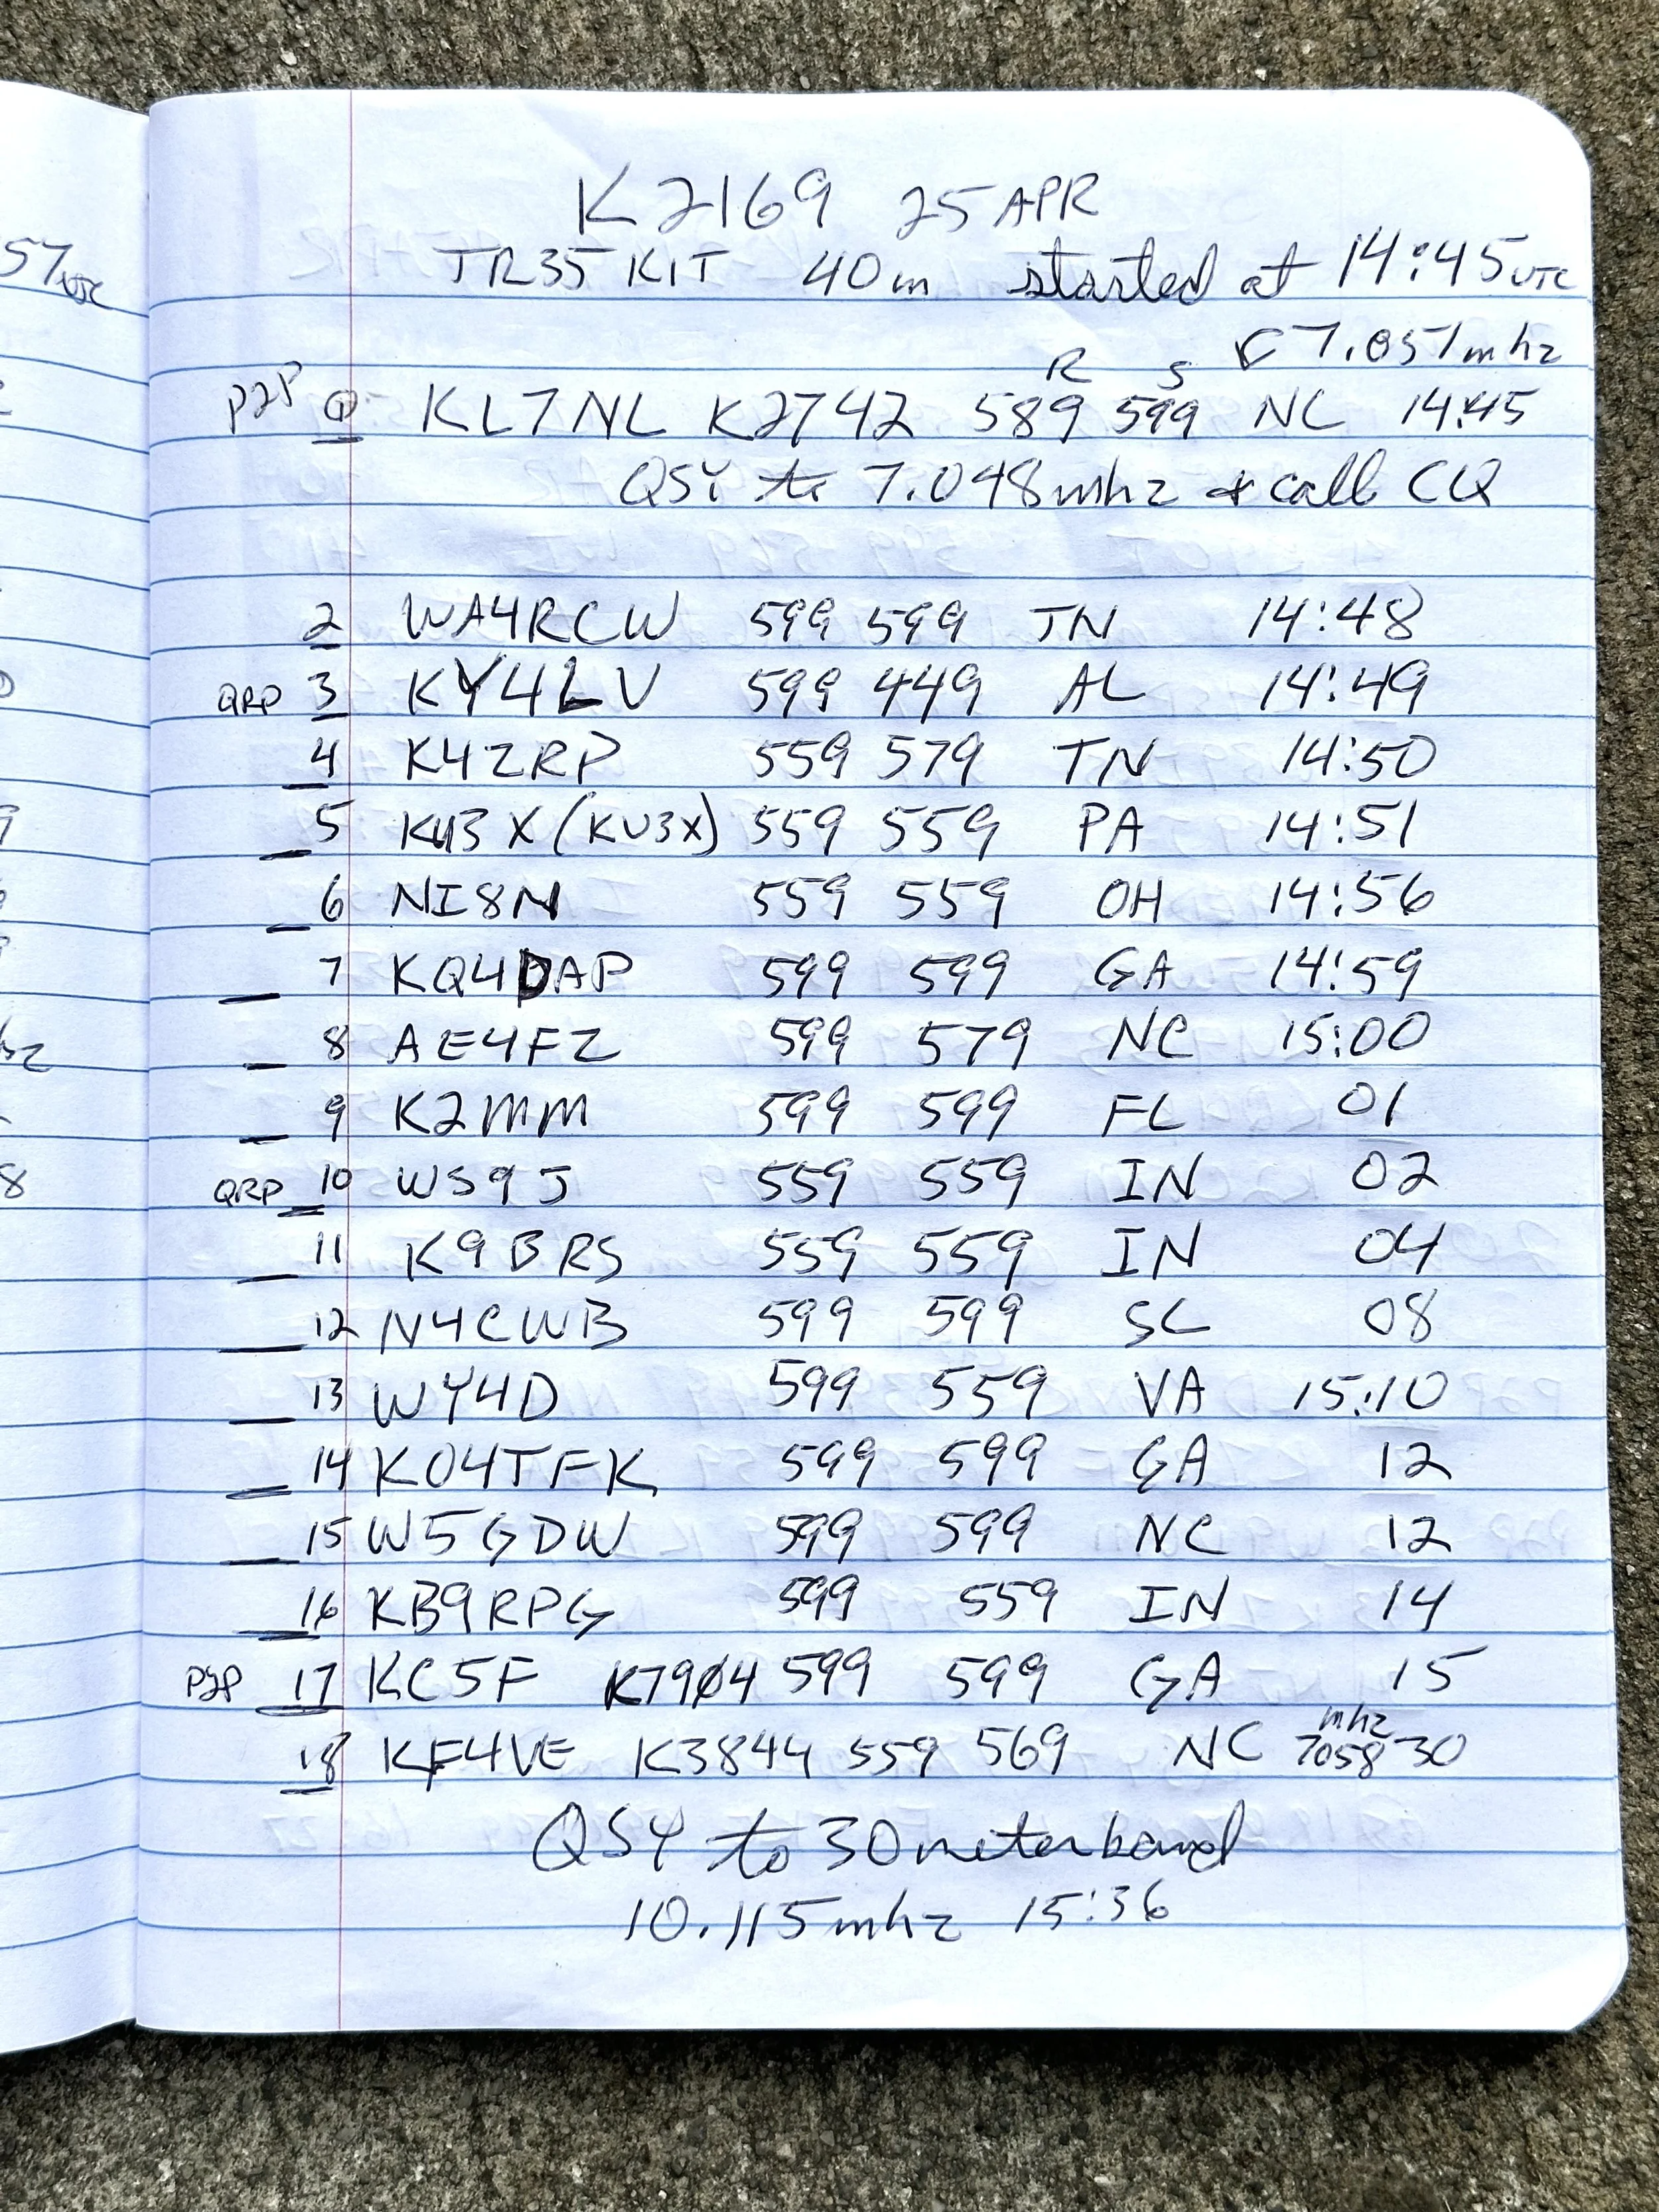 K2169 25 APR
TR35 KIT 40m started at 14:45 UTC
57 UTC
7.051 mhz
R S
P2P 1 KL7NL K2742 589 599 NC 14:45
QSY to 7.048 mhz & call CQ
2 WA4RCW 599 599 TN 14:48
QRP 3 KY4LV 599 449 AL 14:49
4 K4ZRP 559 579 TN 14:50
5 KU3X (KU3X) 559 559 PA 14:51
6 NI8N 559 559 OH 14:56
7 KQ4DAP 599 599 GA 14:59
8 AE4FZ 599 579 NC 15:00
9 K2MM 599 599 FL 01
QRP 10 WS9J 559 559 IN 02
8
11 K9BRS 559 559 IN 04
12 N4CWB 599 599 SC 08
13 WY4D 599 559 VA 15:10
14 KO4TFK 599 599 GA 12
15 W5GDW 599 599 NC 12
16 KB9RPG 599 559 IN 14
P2P 17 KC5F K7904 599 599 GA 15
mhz
18 KF4VE K3844 559 569 NC 7058 30
QSY to 30 meter band
10.115 mhz 15:36